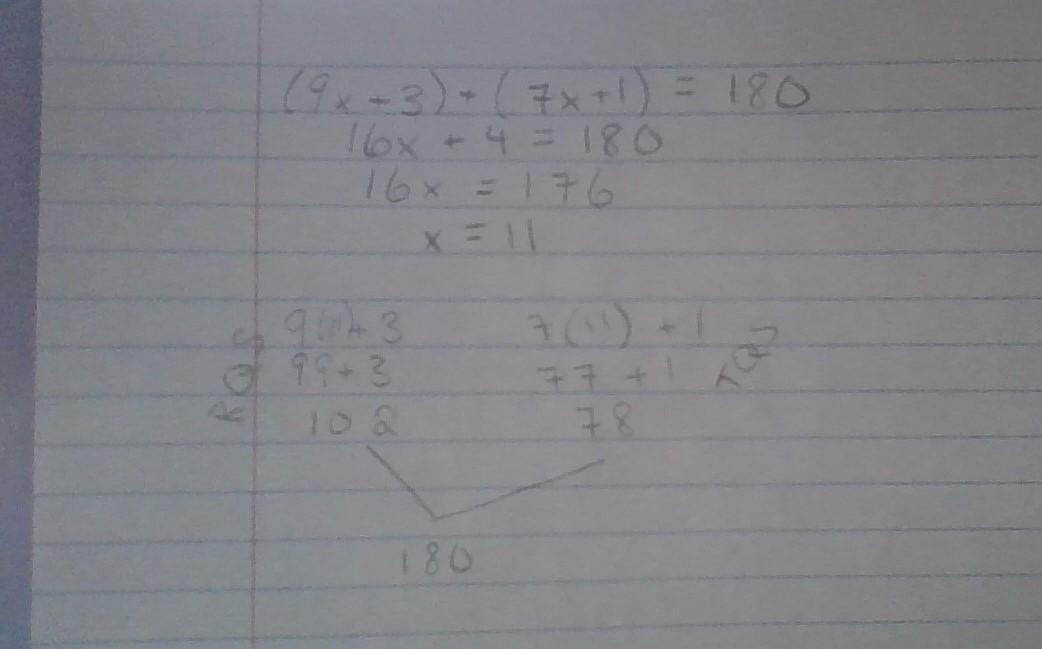 (9x+3)+(7x+1) = 180
16x + 4 = 180
16x = 176
x = 11
9(11)+3 7(11) + 1
99+3 77 + 1
102 78
180